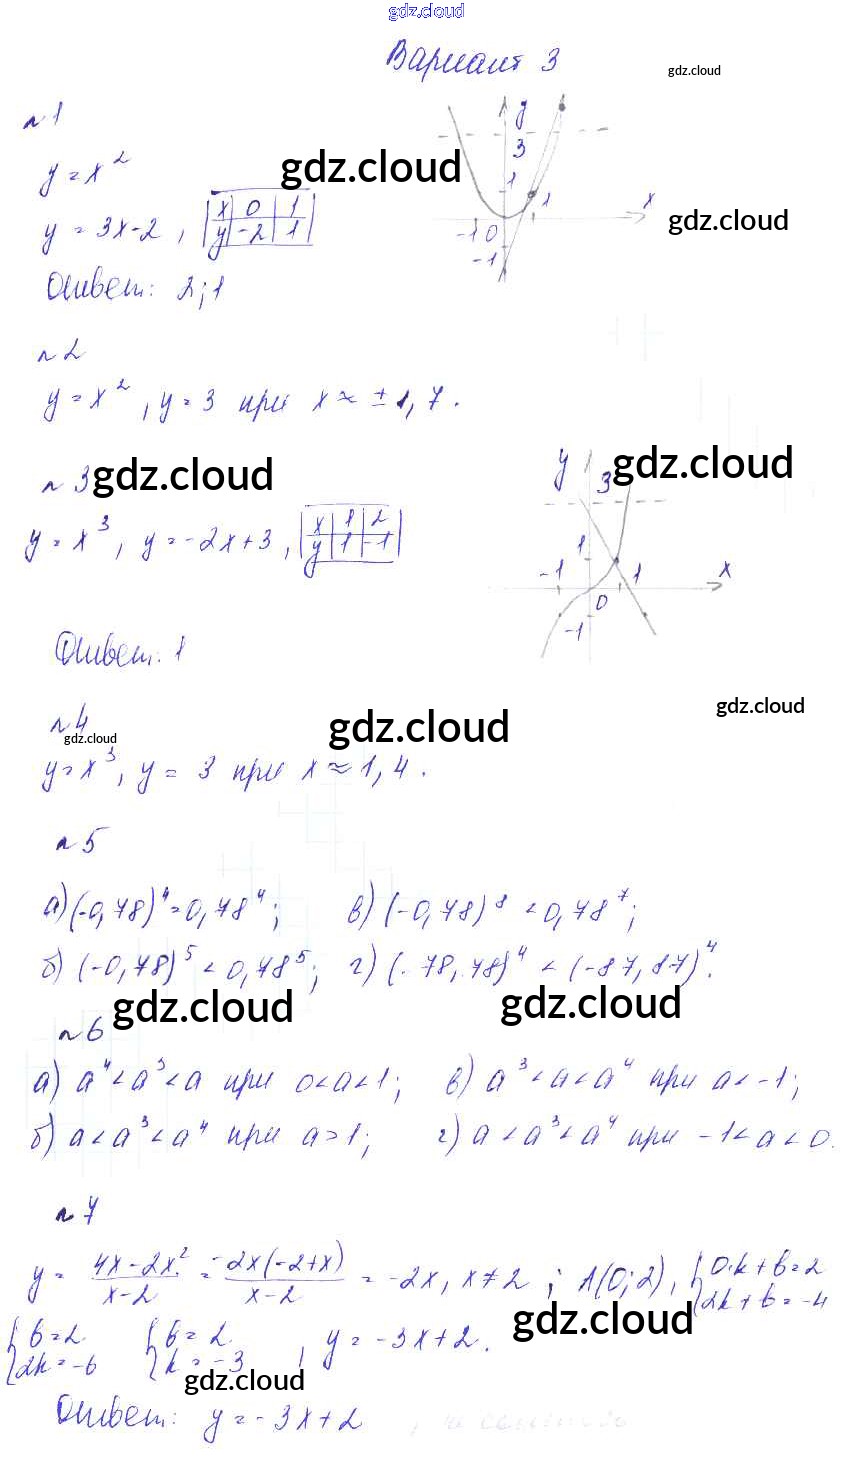 gdz.cloud
Вариант 3
gdz.cloud
n1
y = x²
gdz.cloud
y = 3x-2, | x | 0 | 1 |
| y | -2 | 1 |
y
3
1
1
x
-1 0
-1
gdz.cloud
Ответ: 2; 1
n2
y = x², y = 3 при x ≈ ± 1,7.
n3
gdz.cloud
y = x³, y = -2x+3, | x | 1 | 2 |
| y | 1 | -1 |
y
3
gdz.cloud
1
-1
1
x
0
-1
Ответ: 1
n4
gdz.cloud
gdz.cloud
gdz.cloud
y = x³, y = 3 при x ≈ 1,4.
n5
а) (-0,78)⁴ = 0,78⁴; в) (-0,78)⁸ < 0,78⁷;
б) (-0,78)⁵ < 0,78⁵; г) (-78,78)⁴ < (-87,87)⁴.
gdz.cloud
gdz.cloud
n6
а) a⁴ < a³ < a при 0 < a < 1; в) a³ < a < a⁴ при a < -1;
б) a < a³ < a⁴ при a > 1; г) a < a³ < a⁴ при -1 < a < 0.
n7
y = (4x-2x²)/(x-2) = (-2x(-2+x))/(x-2) = -2x, x ≠ 2; A(0;2), {0·k+b=2
{2k+b=-4
gdz.cloud
{b=2 {b=2
{2k=-6 {k=-3, y = -3x+2.
gdz.cloud
Ответ: y = -3x+2